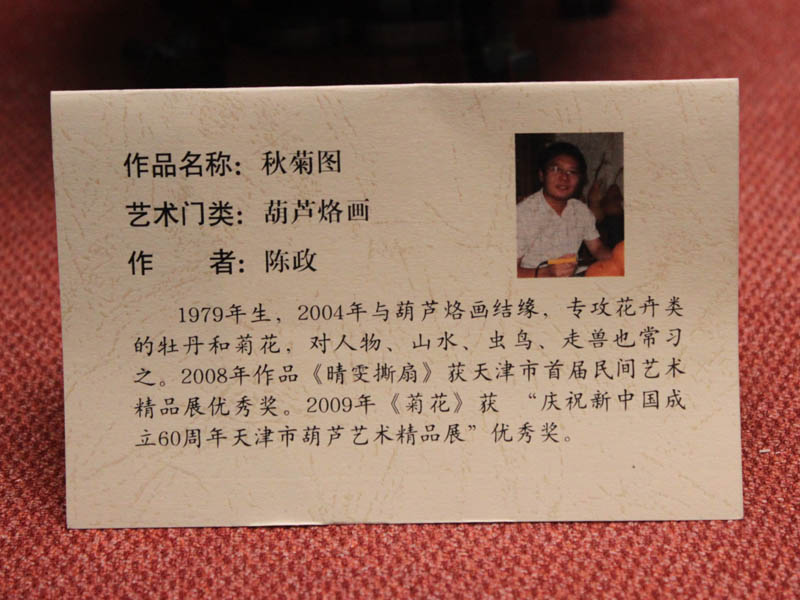 作品名称：秋菊图
艺术门类：葫芦烙画
作　　者：陈政
1979年生，2004年与葫芦烙画结缘，专攻花卉类
的牡丹和菊花，对人物、山水、虫鸟、走兽也常习
之。2008年作品《晴雯撕扇》获天津市首届民间艺术
精品展优秀奖。2009年《菊花》获 “庆祝新中国成
立60周年天津市葫芦艺术精品展”优秀奖。